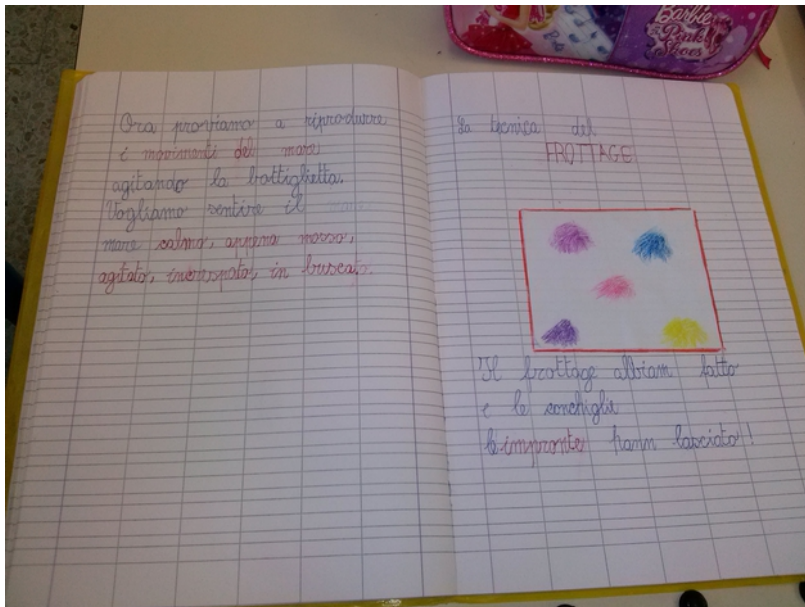 Barbie
Pink
Shoes
Ora proviamo a riprodurre
i movimenti del mare
agitando la bottiglietta.
Vogliamo sentire il mare
mare calmo, appena mosso,
agitato, increspato, in buscata.
La tecnica del
FROTTAGE
Il frottage abbiam fatto
e le conchiglie
le impronte hann lasciato!